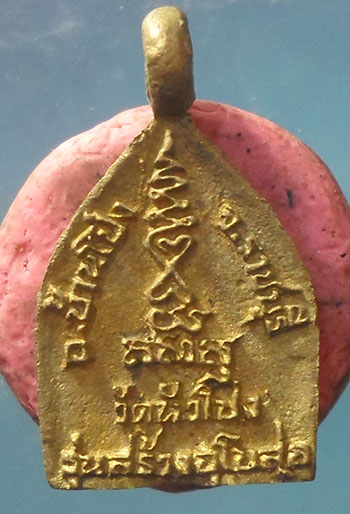 อ.บ้านโป่ง
จ.ราชบุรี
วัดหัวโป่ง
รุ่นสร้างอุโบสถ